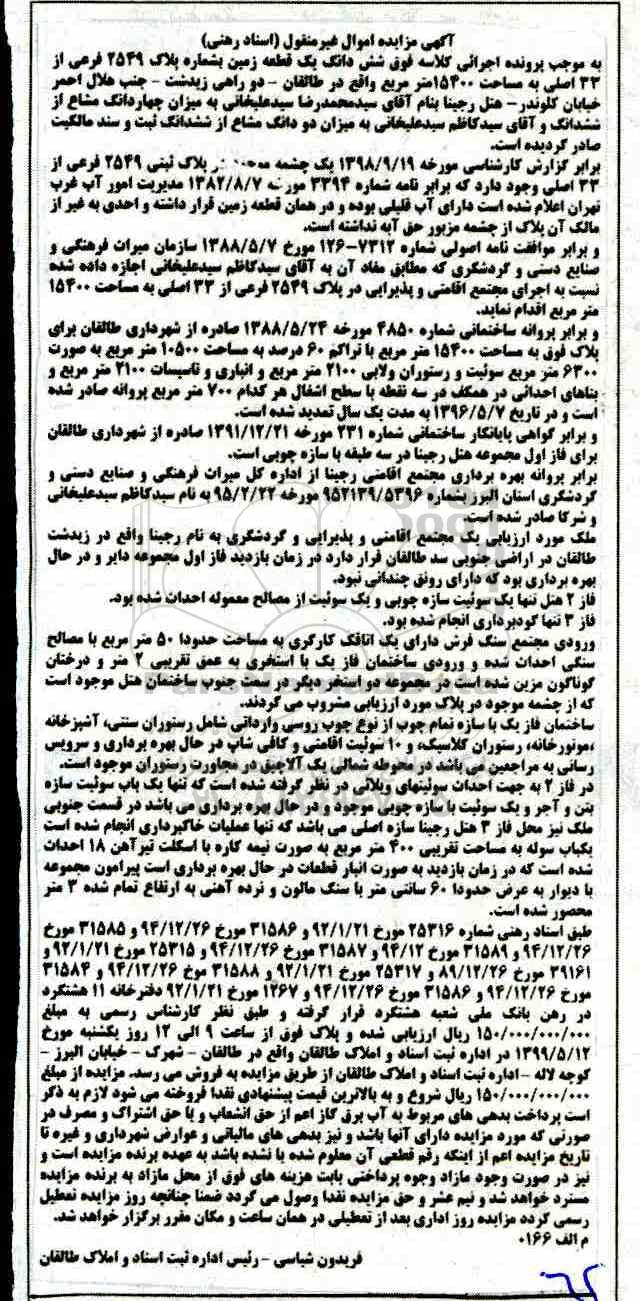 آگهی مزایده اموال غیرمنقول (اسناد رهنی)
به موجب پرونده اجرائی کلاسه فوق شش دانگ یک قطعه زمین بشماره پلاک ۲۵۴۹ فرعی از
۳۳ اصلی به مساحت ۱۵۴۰۰متر مربع واقع در طالقان - دو راهی زیدشت - جنب هلال احمر
خیابان کلوندر- هتل رجینا بنام آقای سیدمحمدرضا سیدعلیخانی به میزان چهاردانگ مشاع از
ششدانگ و آقای سیدکاظم سیدعلیخانی به میزان دو دانگ مشاع از ششدانگ ثبت و سند مالکیت
صادر گردیده است.
برابر گزارش کارشناسی مورخه ۱۳۹۸/۹/۱۹ یک چشمه در پلاک ثبتی ۲۵۴۹ فرعی از
۳۳ اصلی وجود دارد که برابر نامه شماره ۳۳۹۴ مورخه ۱۳۸۲/۸/۷ مدیریت امور آب غرب
تهران اعلام شده است دارای آب قلیلی بوده و در همان قطعه زمین قرار داشته و احدی به غیر از
مالک آن پلاک از چشمه مزبور حق آبه نداشته است.
و برابر موافقت نامه اصولی شماره ۷۳۱۲-۱۲۶ مورخ ۱۳۸۸/۵/۷ سازمان میراث فرهنگی و
صنایع دستی و گردشگری که مطابق مفاد آن به آقای سیدکاظم سیدعلیخانی اجازه داده شده
نسبت به اجرای مجتمع اقامتی و پذیرایی در پلاک ۲۵۴۹ فرعی از ۳۳ اصلی به مساحت ۱۵۴۰۰
متر مربع اقدام نماید.
و برابر پروانه ساختمانی شماره ۴۸۵۰ مورخه ۱۳۸۸/۵/۲۴ صادره از شهرداری طالقان برای
پلاک فوق به مساحت ۱۵۴۰۰ متر مربع با تراکم ۶۰ درصد به مساحت ۱۰۵۰۰ متر مربع به صورت
۶۳۰۰ متر مربع سوئیت و رستوران ولابی ۲۱۰۰ متر مربع و انباری و تاسیسات ۲۱۰۰ متر مربع و
بناهای احداثی در همکف در سه نقطه با سطح اشغال هر کدام ۷۰۰ متر مربع پروانه صادر شده
است و در تاریخ ۱۳۹۶/۵/۷ به مدت یک سال تمدید شده است.
و برابر گواهی پایانکار ساختمانی شماره ۲۳۱ مورخه ۱۳۹۱/۱۲/۲۱ صادره از شهرداری طالقان
برای فاز اول مجموعه هتل رجینا در سه طبقه با سازه چوبی است.
برابر پروانه بهره برداری مجتمع اقامتی رجینا از اداره کل میراث فرهنگی و صنایع دستی و
گردشگری استان البرز بشماره ۹۵۲۱۳۹/۵۳۹۶ مورخه ۹۵/۲/۲۲ به نام سیدکاظم سیدعلیخانی
و شرکا صادر شده است.
ملک مورد ارزیابی یک مجتمع اقامتی و پذیرایی و گردشگری به نام رجینا واقع در زیدشت
طالقان در اراضی جنوبی سد طالقان قرار دارد در زمان بازدید فاز اول مجموعه دایر و در حال
بهره برداری بود که دارای رونق چندانی نبود.
فاز ۲ هتل تنها یک سوئیت سازه چوبی و یک سوئیت از مصالح معموله احداث شده بود.
فاز ۳ تنها گودبرداری انجام شده بود.
ورودی مجتمع سنگ فرش دارای یک اتاقک کارگری به مساحت حدودا ۵۰ متر مربع با مصالح
سنگی احداث شده و ورودی ساختمان فاز یک با استخری به عمق تقریبی ۲ متر و درختان
گوناگون مزین شده است در مجموعه دو استخر دیگر در سمت جنوب ساختمان هتل موجود است
که از چشمه موجود در پلاک مورد ارزیابی مشروب می گردند.
ساختمان فاز یک با سازه تمام چوب از نوع چوب روسی وارداتی شامل رستوران سنتی، آشپزخانه
،موتورخانه، رستوران کلاسیک، و ۱۰ سوئیت اقامتی و کافی شاپ در حال بهره برداری و سرویس
رسانی به مراجعین می باشد در محوطه شمالی یک آلاچیق در مجاورت رستوران موجود است.
در فاز ۲ به جهت احداث سوئیتهای ویلائی در نظر گرفته شده است که تنها یک باب سوئیت سازه
بتن و آجر و یک سوئیت با سازه چوبی موجود و در حال بهره برداری می باشد در قسمت جنوبی
ملک نیز محل فاز ۳ هتل رجینا سازه اصلی می باشد که تنها عملیات خاکبرداری انجام شده است
یکباب سوله به مساحت تقریبی ۴۰۰ متر مربع به صورت نیمه کاره با اسکلت تیرآهن ۱۸ احداث
شده است که در زمان بازدید به صورت انبار قطعات در حال بهره برداری است پیرامون مجموعه
با دیوار به عرض حدودا ۶۰ سانتی متر با سنگ مالون و نرده آهنی به ارتفاع تمام شده ۳ متر
محصور شده است.
طبق اسناد رهنی شماره ۲۵۳۱۶ مورخ ۹۲/۱/۲۱ و ۳۱۵۸۶ مورخ ۹۴/۱۲/۲۶ و ۳۱۵۸۵ مورخ
۹۴/۱۲/۲۶ و ۳۱۵۸۹ مورخ ۹۴/۱۲ و ۳۱۵۸۷ مورخ ۹۴/۱۲/۲۶ و ۲۵۳۱۵ مورخ ۹۲/۱/۲۱ و
۲۹۱۶۱ مورخ ۸۹/۱۲/۲۶ و ۲۵۳۱۷ مورخ ۹۲/۱/۲۱ و ۳۱۵۸۸ موخ ۹۴/۱۲/۲۶ و ۳۱۵۸۴
مورخ ۹۴/۱۲/۲۶ و ۳۱۵۸۶ مورخ ۹۴/۱۲/۲۶ و ۱۲۶۷ مورخ ۹۲/۱/۲۱ دفترخانه ۱۱ هشتگرد
در رهن بانک ملی شعبه هشتگرد قرار گرفته و طبق نظر کارشناس رسمی به مبلغ
۱۵۰/۰۰۰/۰۰۰/۰۰۰ ریال ارزیابی شده و پلاک فوق از ساعت ۹ الی ۱۲ روز یکشنبه مورخ
۱۳۹۹/۵/۱۲ در اداره ثبت اسناد و املاک طالقان واقع در طالقان - شهرک - خیابان البرز -
کوچه لاله -اداره ثبت اسناد و املاک طالقان از طریق مزایده به فروش می رسد. مزایده از مبلغ
۱۵۰/۰۰۰/۰۰۰/۰۰۰ ریال شروع و به بالاترین قیمت پیشنهادی نقدا فروخته می شود لازم به ذکر
است پرداخت بدهی های مربوط به آب برق گاز اعم از حق انشعاب و یا حق اشتراک و مصرف در
صورتی که مورد مزایده دارای آنها باشد و نیز بدهی های مالیاتی و عوارض شهرداری و غیره تا
تاریخ مزایده اعم از اینکه رقم قطعی آن معلوم شده یا نشده باشد به عهده برنده مزایده است و
نیز در صورت وجود مازاد وجوه پرداختی بابت هزینه های فوق از محل مازاد به برنده مزایده
مسترد خواهد شد و نیم عشر و حق مزایده نقدا وصول می گردد ضمنا چنانچه روز مزایده تعطیل
رسمی گردد مزایده روز اداری بعد از تعطیلی در همان ساعت و مکان مقرر برگزار خواهد شد.
م الف ۰۱۶۶
فریدون شیاسی - رئیس اداره ثبت اسناد و املاک طالقان